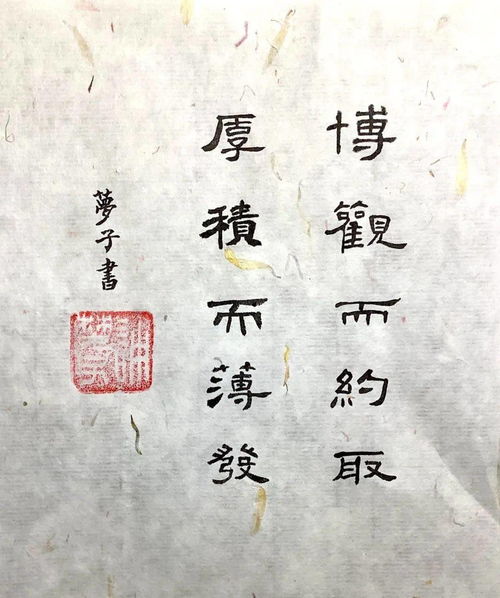 博觀而約取
厚積而薄發
夢子書